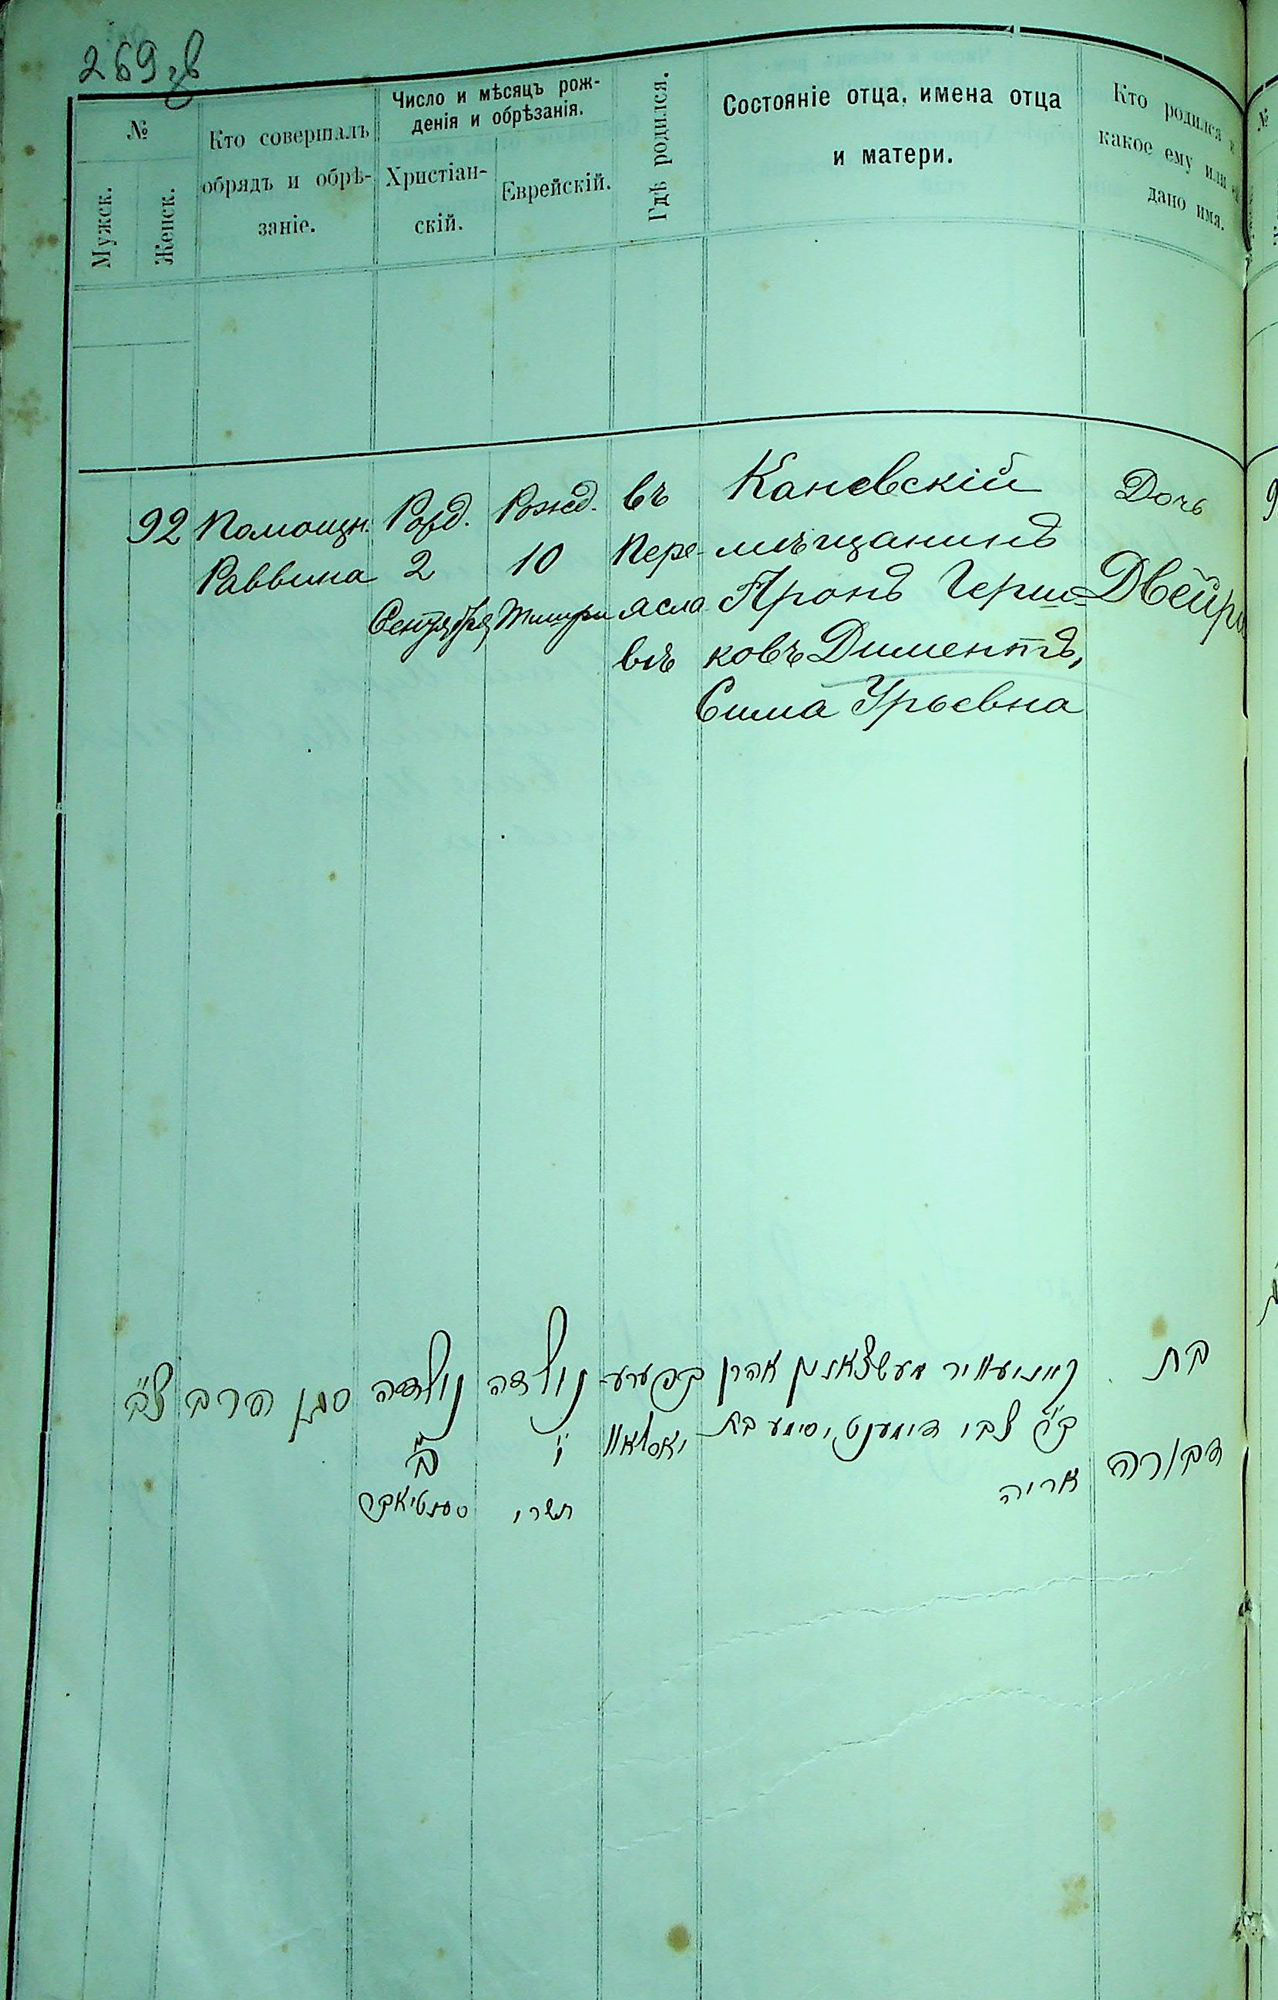 269 зв
№
Мужск.
Женск.
Кто совершалъ
обрядъ и обрѣ-
заніе.
Число и мѣсяцъ рож-
денія и обрѣзанія.
Христіан-
скій.
Еврейскій.
Гдѣ родился.
Состояніе отца, имена отца
и матери.
Кто родился и
какое ему или ей
дано имя.
92
Помощн.
Раввина
Рожд.
2
Сентября
Рожд.
10
Тишри
въ
Пере-
ясла
влѣ
Каневскій
мѣщанинъ
Аронъ Герш-
ковъ Диментъ,
Сима Урьевна
Дочь
Двейра
צ"ב
סגן הרב
נולדה
ב"
סענטיאבר
נולדה
י"
תשרי
בפערע
יאסלאוו
קאניעוויר מעשצאנין אהרן
ב"ר צבי דימענט, וסימע בת
אריה
בת
דבורה